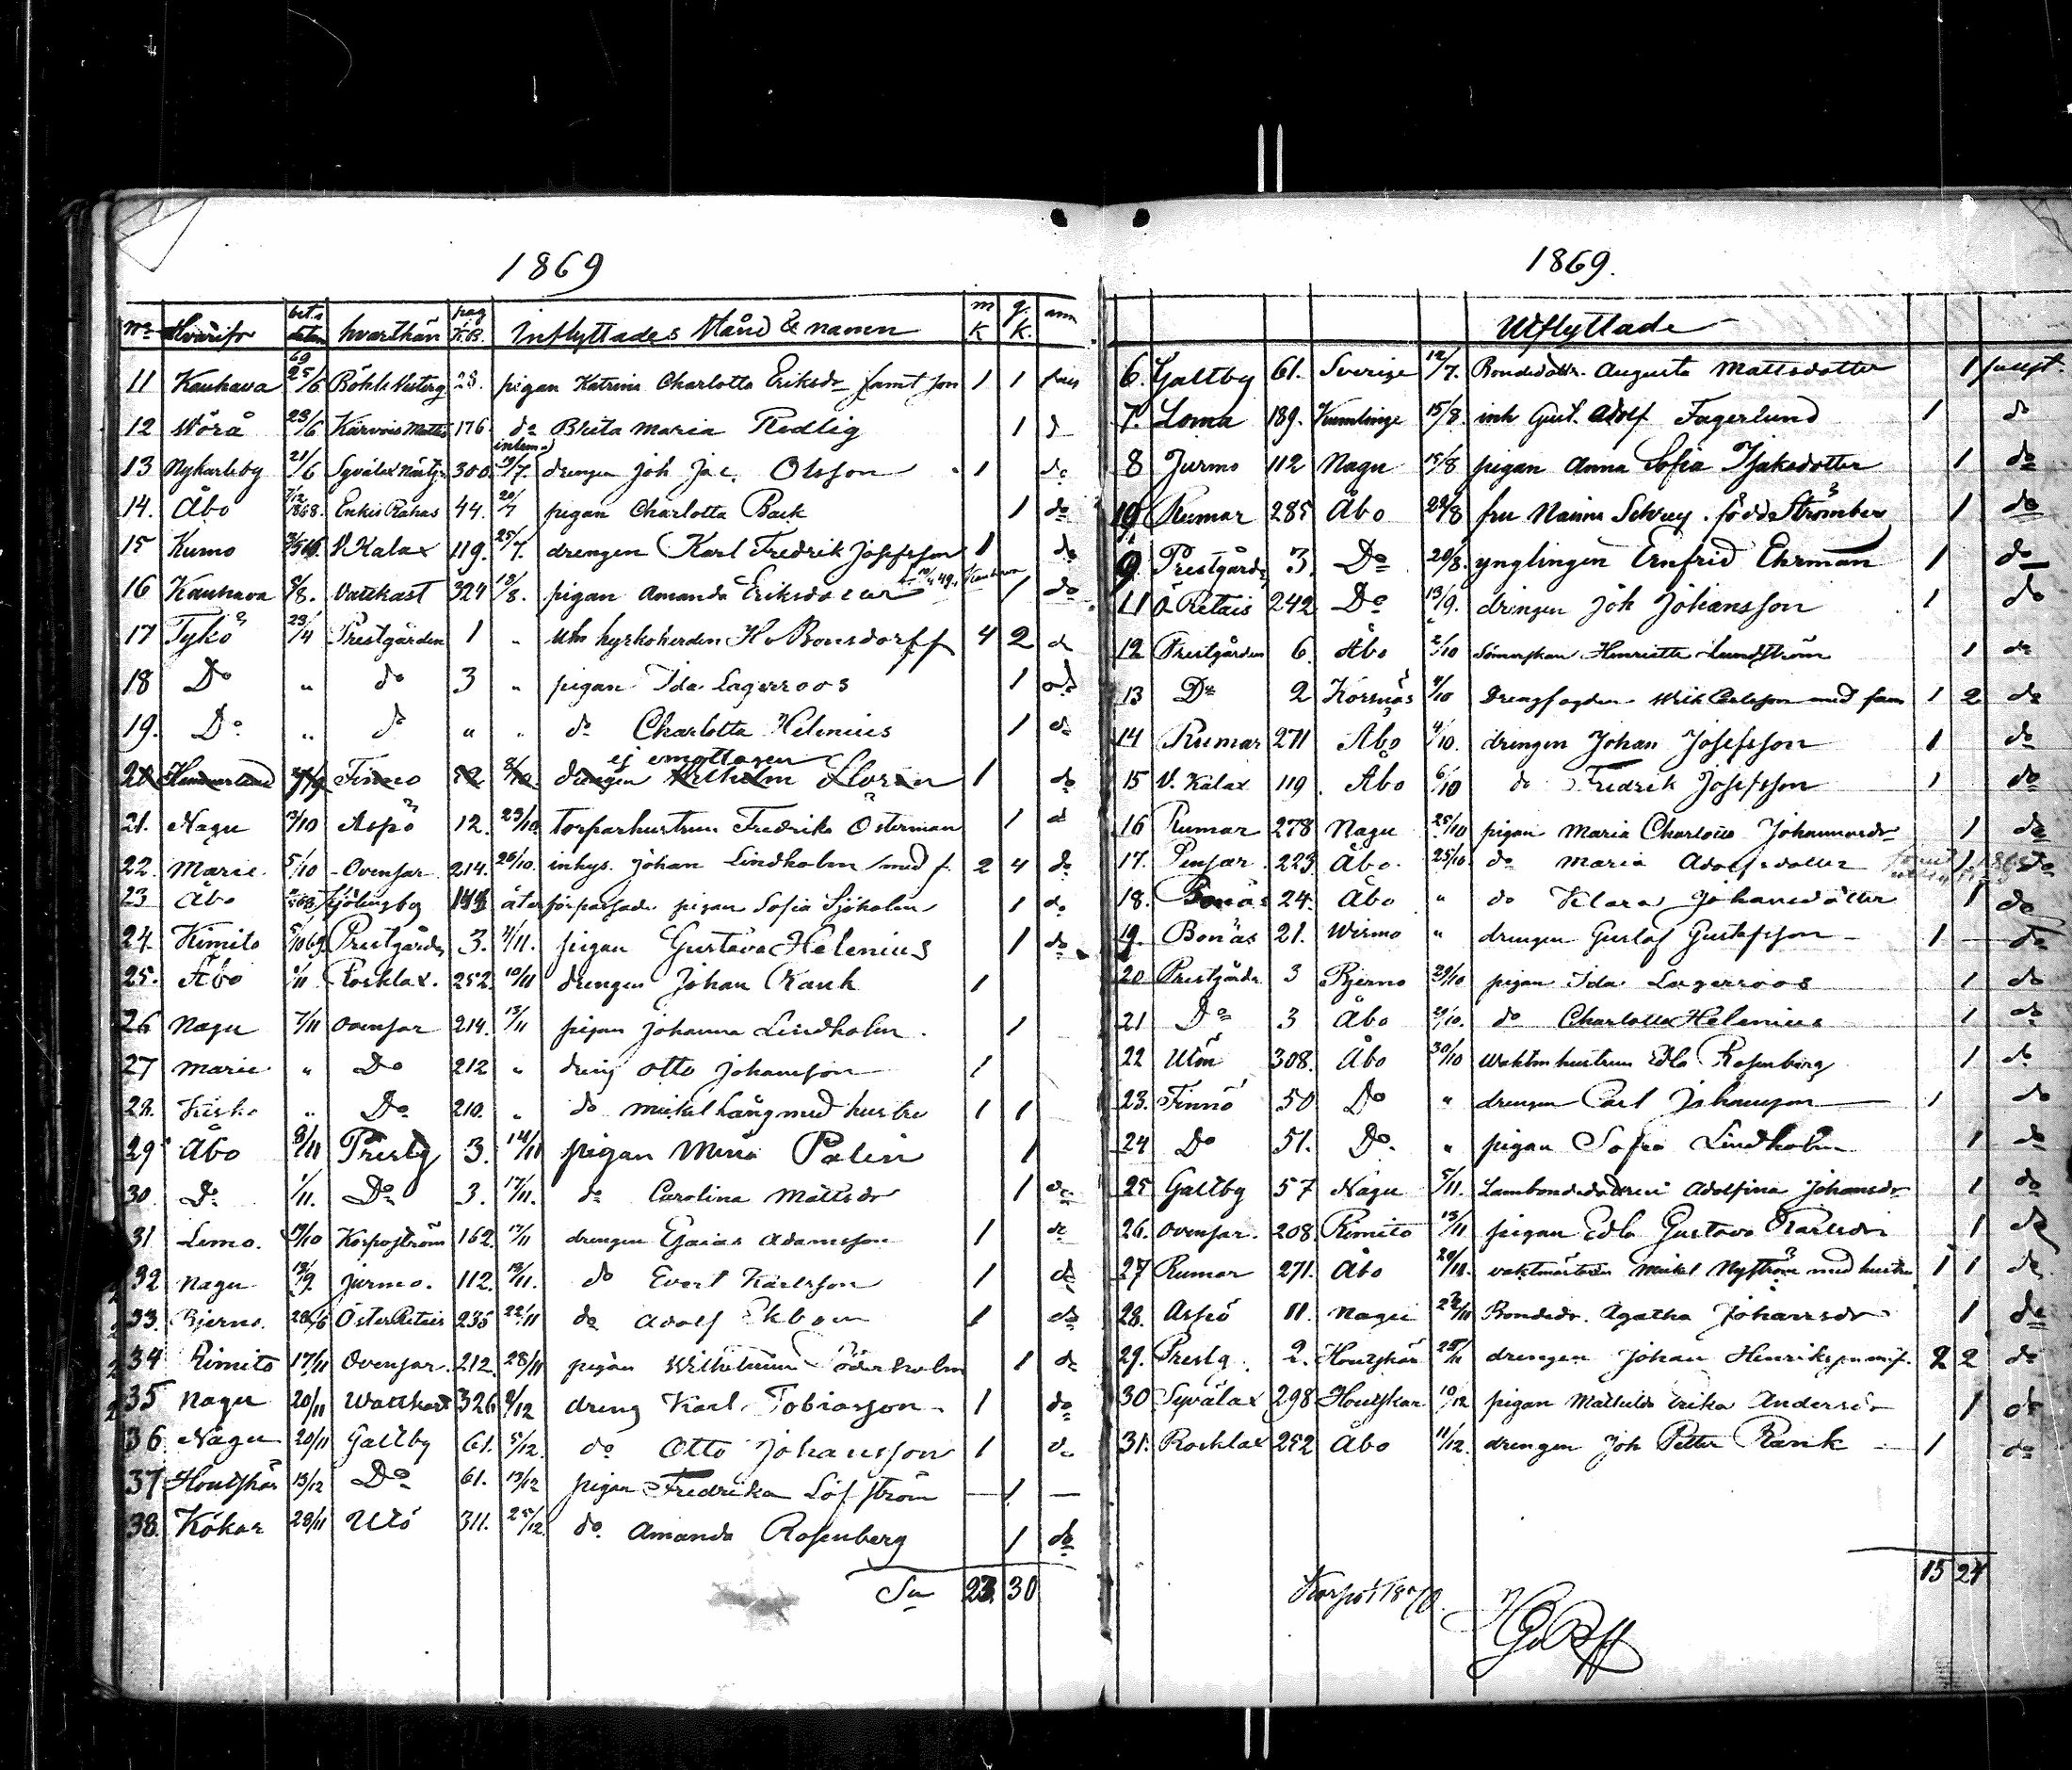 1869
No Hvarifr bet.s datum hvarthän pag K.B. Inflyttades Stånd & namn m K q. K. anm
11 Kauhava 69 25/6 Böhle Vesterg 28. pigan Katrina Charlotta Eriksdr samt son 1 1
12 Wörå 23/6 Kärvois Matts 176 do Brita Maria Redlig 1 d
13 Nykarleby 21/6 Syvälax 300. inlemn 19/7. drengen Joh Jac. Olsson 1 do
14. Åbo 7/12 1868. Enkis Rahas 44. 20/7 pigan Charlotta Back 1 do
15 Kumo V. Kalax 119. 25/7. drengen Karl Fredrik Josefsson 1 do
16 Kauhava 8/8. Vattkast 324 18/8. pigan Amanda Eriksdotter Kauhava 1 do
17 Tykö 23/4 Prestgården 1 " kyrkoherden H. v Bonsdorff 4 2 d
18 Do " do 3 " pigan Ida Lagerroos 1 do
19. Do " do " " do Charlotta Helenius 1 do
ej emottagen
20 Hammarland Finno 52 drengen Wilhelm Floren 1 do
21. Nagu 13/10 Aspö 12. 23/10. torparhustrun Fredrika Österman 1 d
22. Marie 5/10 Ovensor 214. 26/10. inhys. Johan Lindholm med f. 2 4 do
23 Åbo 144 återförpassade pigan Sofia Sjöholm 1 do
24. Kimito 69. Prestgården 3. 4/11. pigan Gustava Helenius 1 do
25. Åbo 1/11 Rosklax. 252. 10/11 drengen Johan Rank 1
26 Nagu 7/11 Ovensor 214. 13/11 pigan Johanna Lindholm. 1
27 Marie " Do 212 " dreng Otto Johansson 1
28. Kisko " Do 210. " do Mickel Lång med hustru 1 1
29 Åbo 8/11 Prestg 3. 14/11 pigan Mina Palin 1
30. Do 1/11. Do 3. 17/11. do Carolina Mattsdr 1 do
31 Lemo. 19/10 Korpoström 162. 17/11 drengen Esaias Adamsson 1 do
32 Nagu 13/9. Jurmo. 112. 19/11. do Evert Karlsson 1 do
33. Bjerno. Öster Retais 235 22/11 do Adolf Ekbom 1 do
34 Kimito 17/11 Ovensor. 212. 28/11 pigan Wilhelmina Söderholm 1 do
35 Nagu 20/11 Wattkast 326 dreng Karl Tobiasson 1 do
36. Nagu 20/11 Galtby 61. 5/12. do Otto Johansson 1 do
37 Houtskär 13/12 Do 61. 13/12 pigan Fredrika Löfström 1 —
38. Kökar 28/11 Utö 311. 25/12. do Amanda Rosenberg 1 do
Sa 23. 30
1869.
Utflyttade
6. Galtby 61. Sverige 12/7. Bondedottr. Augusta Mattsdotter 1
7. Loma 189. Kumlinge 15/8. inh Gust. Adolf Fagerlund 1 do
8 Jurmo 112 Nagu 15/8 pigan Anna Sofia Isaksdotter 1 do
10 Rumar 285 Åbo 29/8 fru Naima född Strömberg 1 do
9. Prestgården 3. Do 20/8. ynglingen Ernfrid Ehrman 1 do
11 Ö Retais 242 Do 13/9. drengen Joh Johansson 1 do
12 Prestgården 6. Åbo 2/10 Sömerskan Henrietta Lundström 1 do
13 Do 2 Korsnäs 4/10 Drengfogden Wilh Carlsson med fam 1 2 do
14 Rumar 271 Åbo 4/10. drengen Johan Josefsson 1 do
15 V. Kalax 119. Åbo 6/10 do Fredrik Josefsson 1 do
16 Rumar 278 Nagu 25/10 pigan Maria Charlotta Johannesdr 1 do
17. Pensar 223 Åbo. 25/10 do Maria Adolfsdotter 1 do
18. Bonäs 24. Åbo " do Klara Johansdotter 1 do
19. Bonäs 21. Wirmo " drengen Gustaf Gustafsson 1 do
20 Prestgården 3 Bjerno 29/10 pigan Ida Lagerroos 1 do
21 Do 3 Åbo 29/10. do Charlotta Helenius 1 do
22 Utön 308. Åbo 30/10 Waktm hustrun Edla Rosenberg 1 do
23. Finnö 50 Do " drengen Carl Johansson 1 do
24 Do 51. Do. " pigan Sofia Lindholm 1 do
25 Galtby 57 Nagu 5/11. Adolfina Johansdr 1 do
26. Ovensor. 208. Kimito 13/11 pigan Edla Gustava Karlsdr 1 do
27 Rumar 271. Åbo 20/11. vaktmästaren Mickel Nyström med hustru 1 1 do
28. Aspö 11. Nagu Bondedr. Agatha Johansdr 1 do
29. Prestg. 2. Houtskär drengen Johan Henriksson m f. 2 2 do
30 Syvälax 298 Houtskär 10/12 pigan Mathilda Erika Andersdr 1 do
31. Rosklax 252 Åbo 11/12. drengen Joh Petter Rank 1 do
15 24